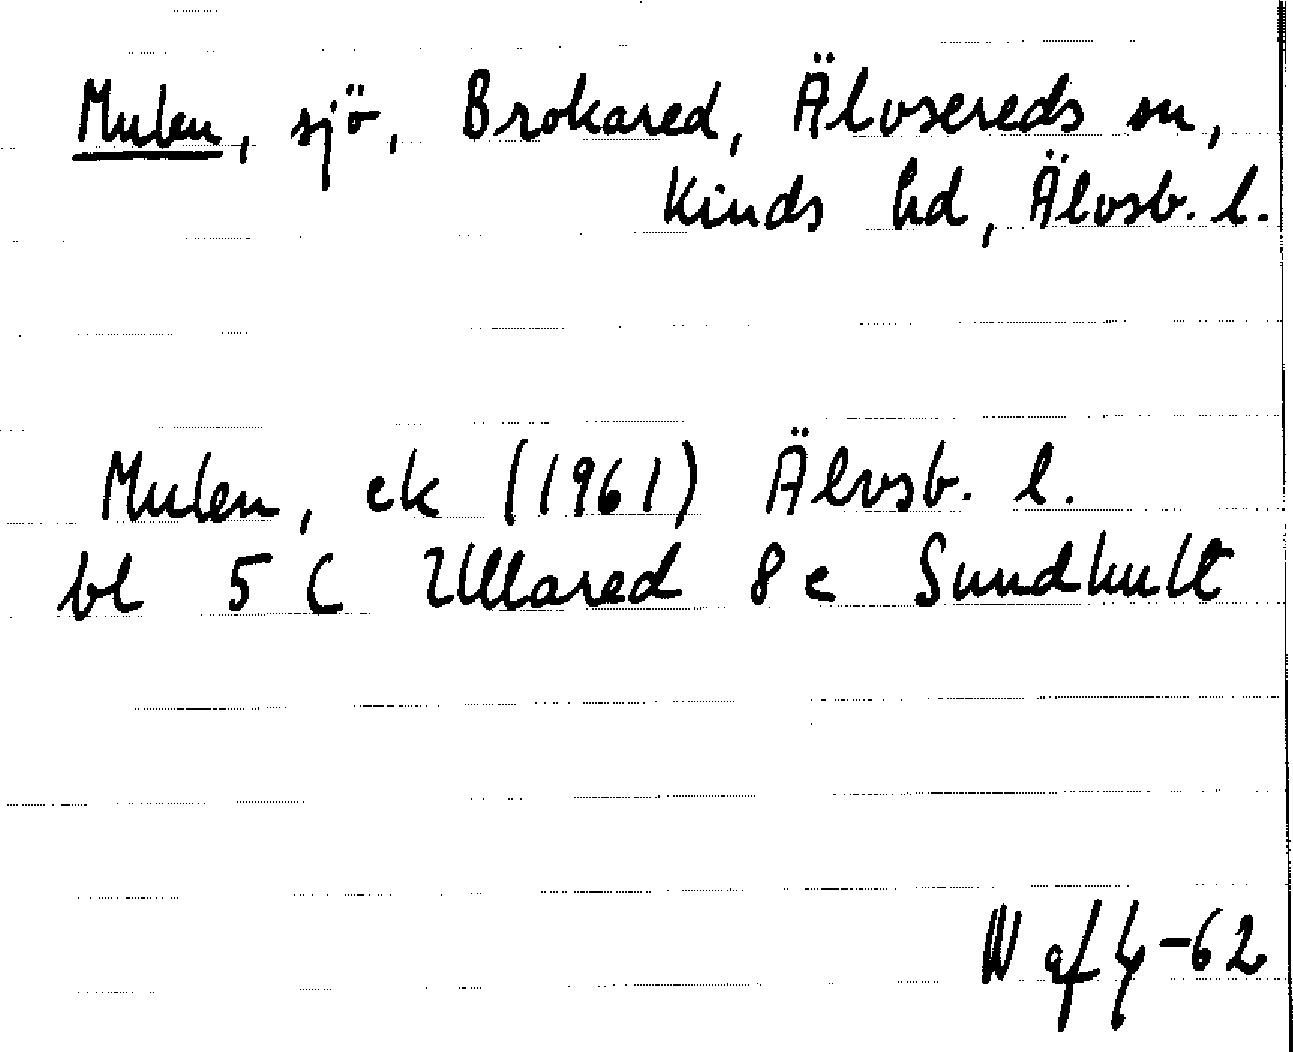 Mulen, sjö, Brokared, Älvsereds sn,
Kinds hd, Älvsb. l.
Mulen, ek (1961) Älvsb. l.
bl 5 C Ullared 8 e Sundhult
W af 4-62